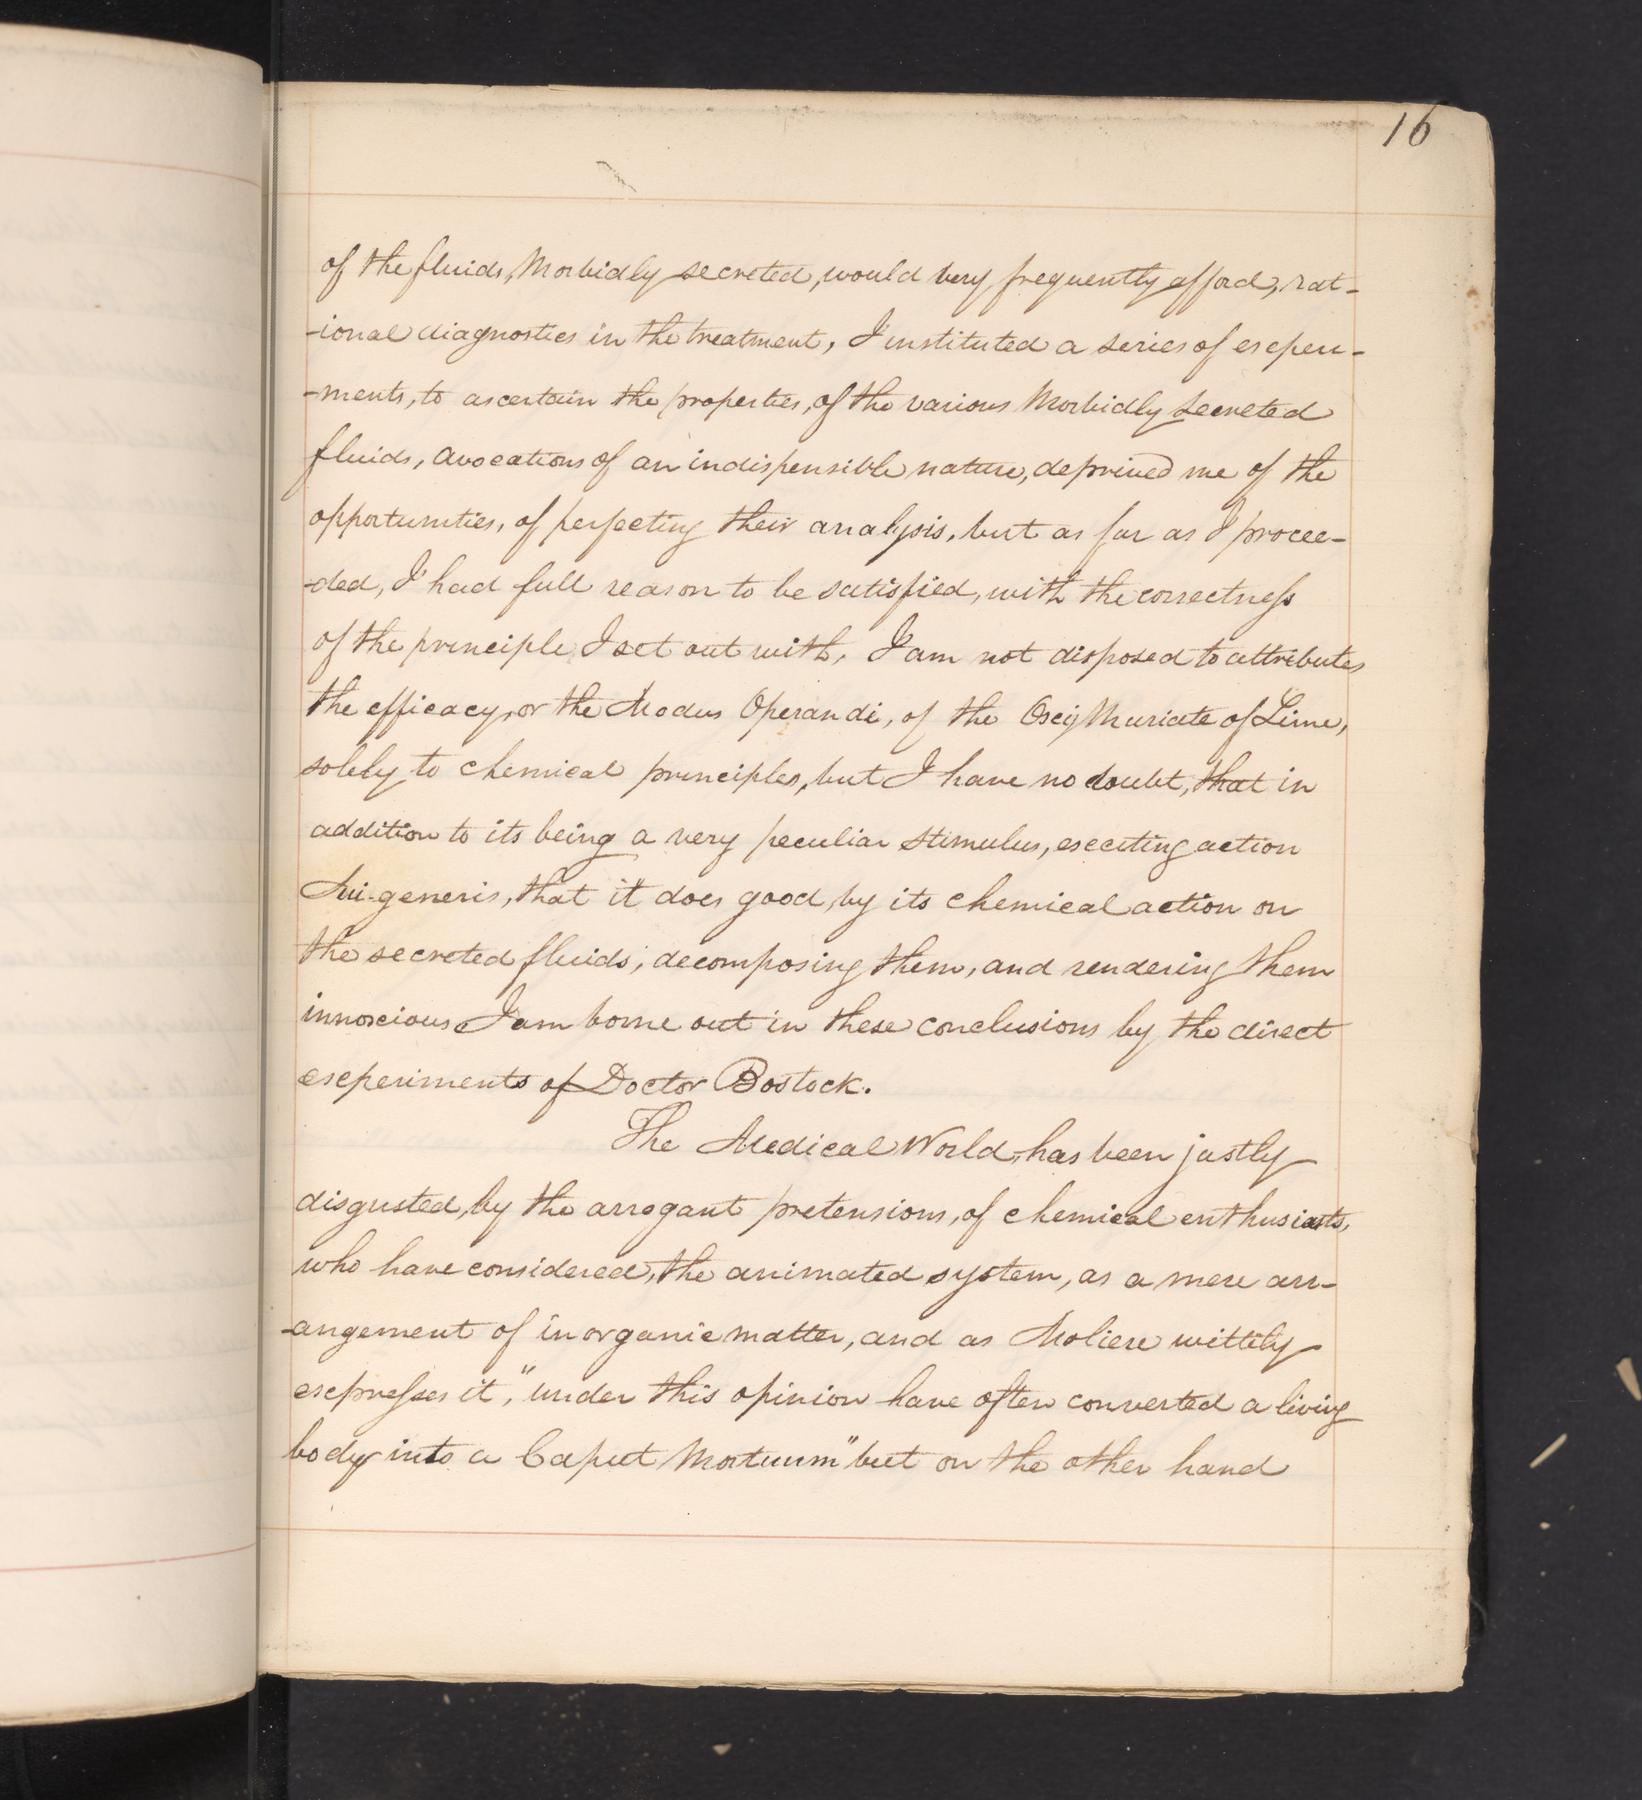 16
of the fluids, Morbidly secreted, would very frequently afford, rat-
-ional diagnostics in the treatment, I instituted a series of experi-
-ments, to ascertain the properties, of the various Morbidly Secreted
fluids, avocations of an indispensible nature, deprived me of the
opportunities, of perfecting their analysis, but as far as I procee-
-ded, I had full reason to be satisfied, with the correctness
of the principle I set out with, I am not disposed to attribute,
the efficacy, or the Modus Operandi, of the Oxy Muriate of Lime,
solely to chemical principles, but I have no doubt, that in
addition to its being a very peculiar Stimulus, exciting action
Sui-generis, that it does good, by its chemical action on
the secreted fluids, decomposing them, and rendering them
innoxious. I am borne out in these conclusions by the direct
experiments of Doctor Bostock.
The Medical World, has been justly
disgusted, by the arrogant pretensions, of chemical enthusiasts,
who have considered, the animated system, as a mere arr-
-angement of inorganic matter, and as Moliere wittily
expresses it, "under this opinion have often converted a living
body into a Caput Mortuum" but on the other hand